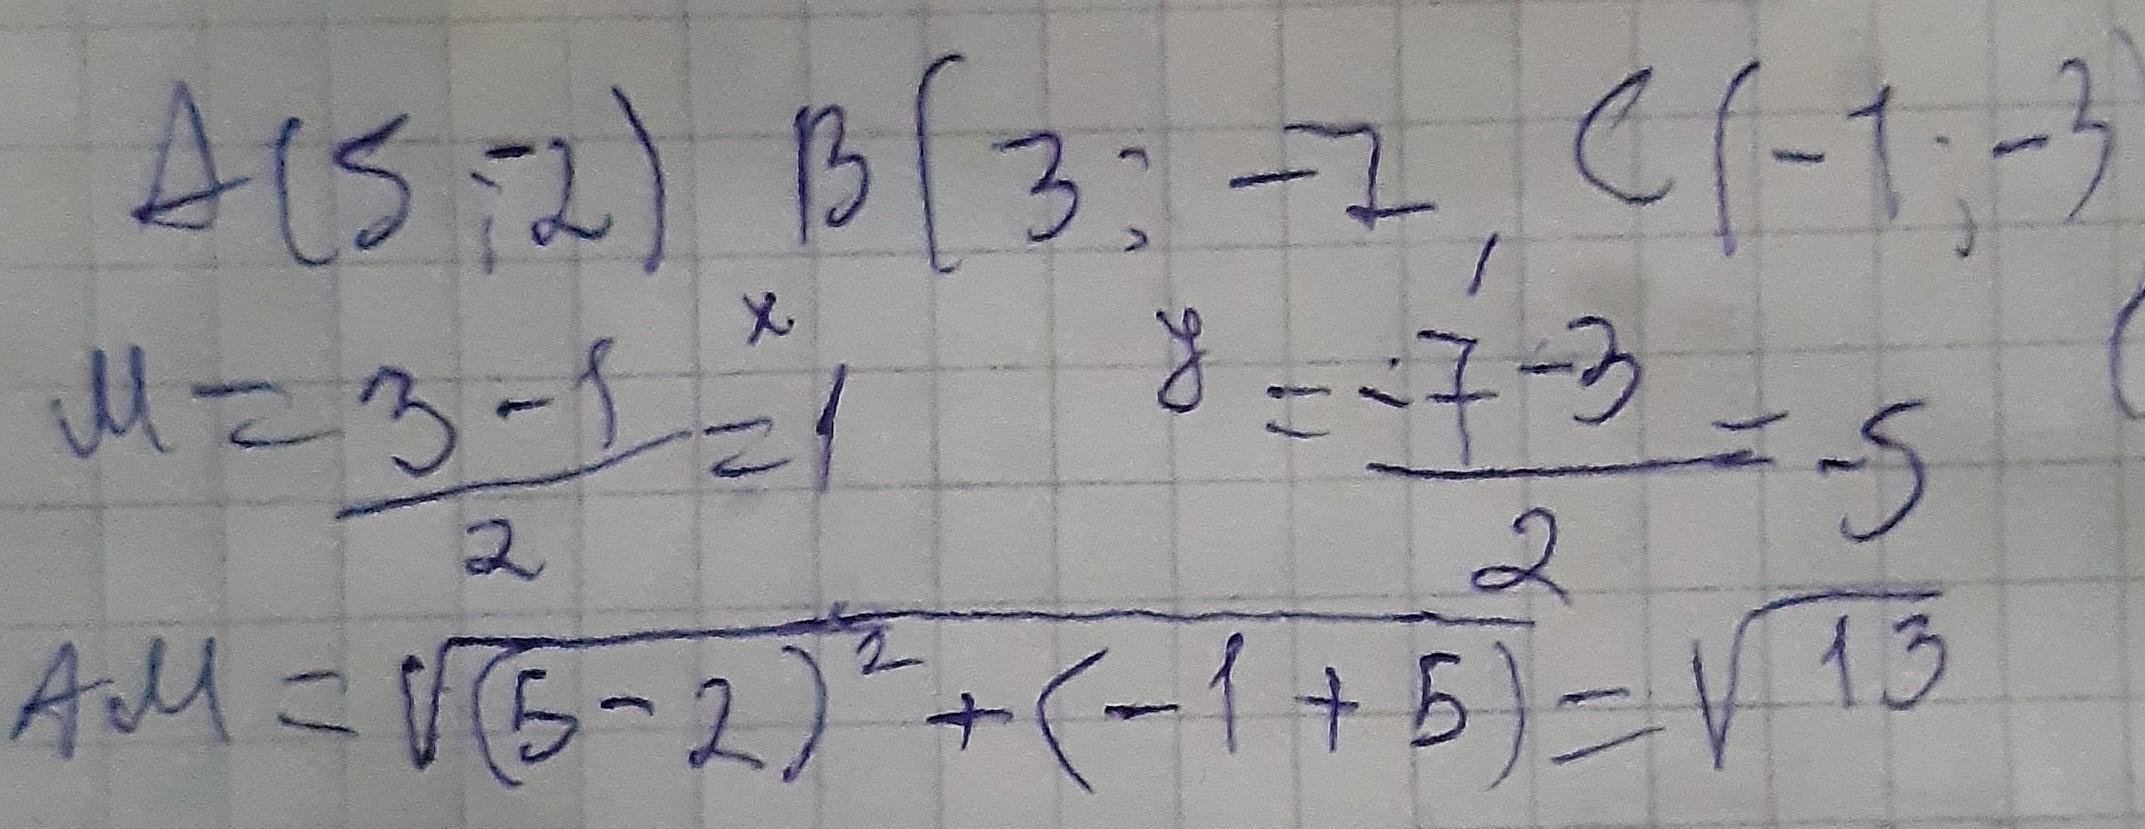 A(5;-2) B(3;-7, C(-1;-3)
M = (3-1)/2 = 1 x y = (-7-3)/2 = -5
AM = √((5-2)² + (-1+5)) = √13